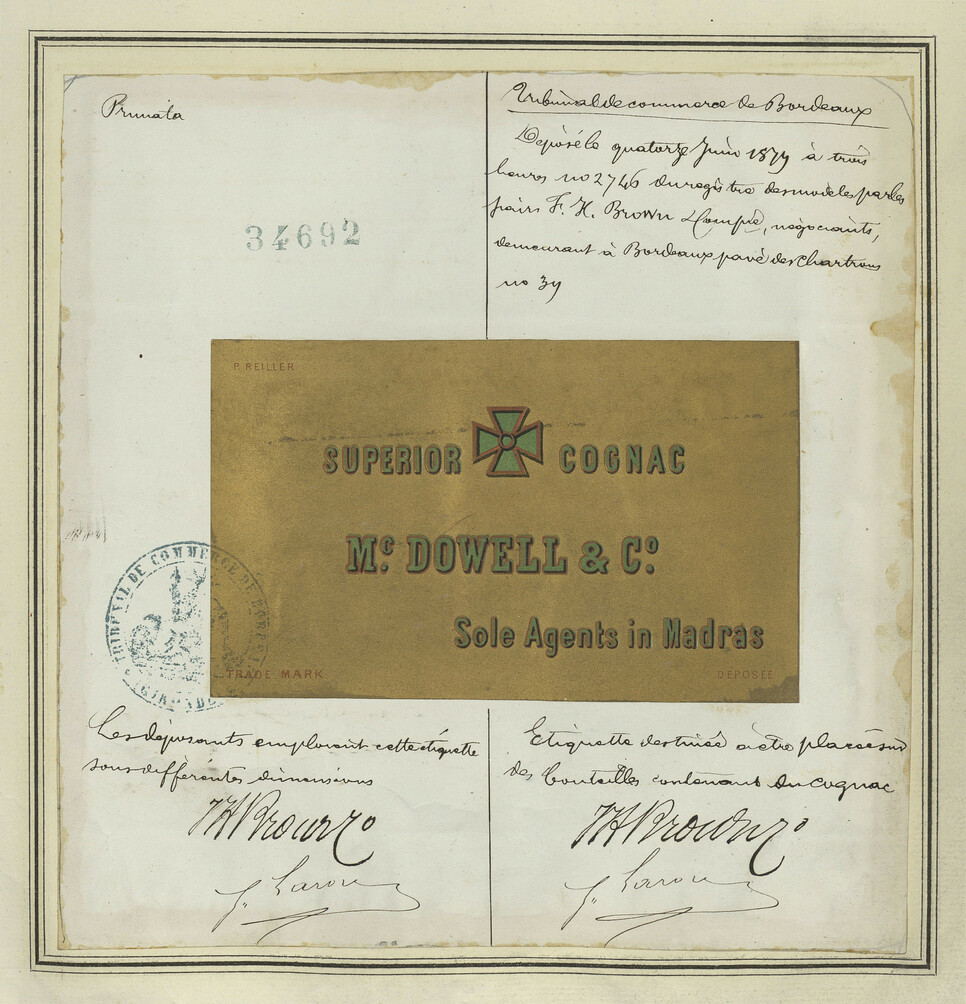 Primata
34692
Tribunal de commerce de Bordeaux
Déposé le quatorze Juin 1879 à trois
heures no 2746 du registre des modèles par les
sieurs F. H. Brown & Compie, négociants,
demeurant à Bordeaux pavé des Chartrons
no 39
P. REILLER
SUPERIOR COGNAC
Mc. DOWELL & Co.
Sole Agents in Madras
TRADE MARK
DÉPOSÉE
TRIBUNAL DE COMMERCE DE BORDEAUX
(GIRONDE)
Les déposants emploient cette étiquette
sous différentes dimensions
FH Brown & Co
Etiquette destinée à être placée sur
des bouteilles contenant du cognac
FH Brown & Co